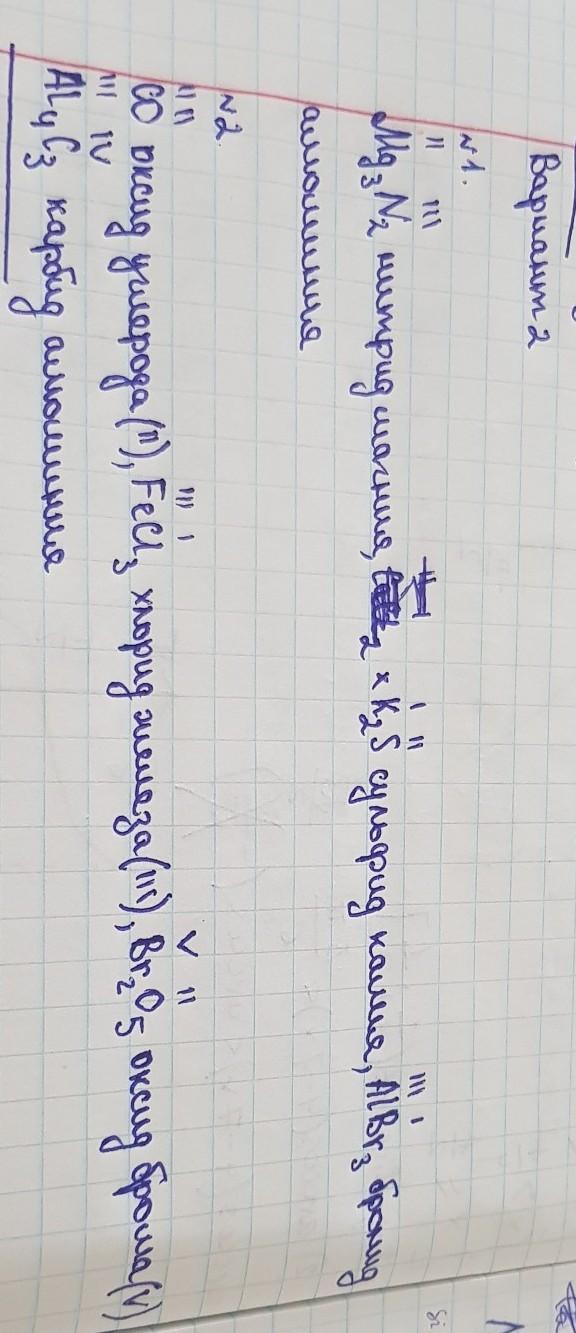 Вариант 2
№1.
II III I II III I
Mg3N2 нитрид магния, K2S сульфид калия, AlBr3 бромид
алюминия
№2.
II II III I V II
CO оксид углерода (II), FeCl3 хлорид железа (III), Br2O5 оксид брома (V)
III IV
Al4C3 карбид алюминия